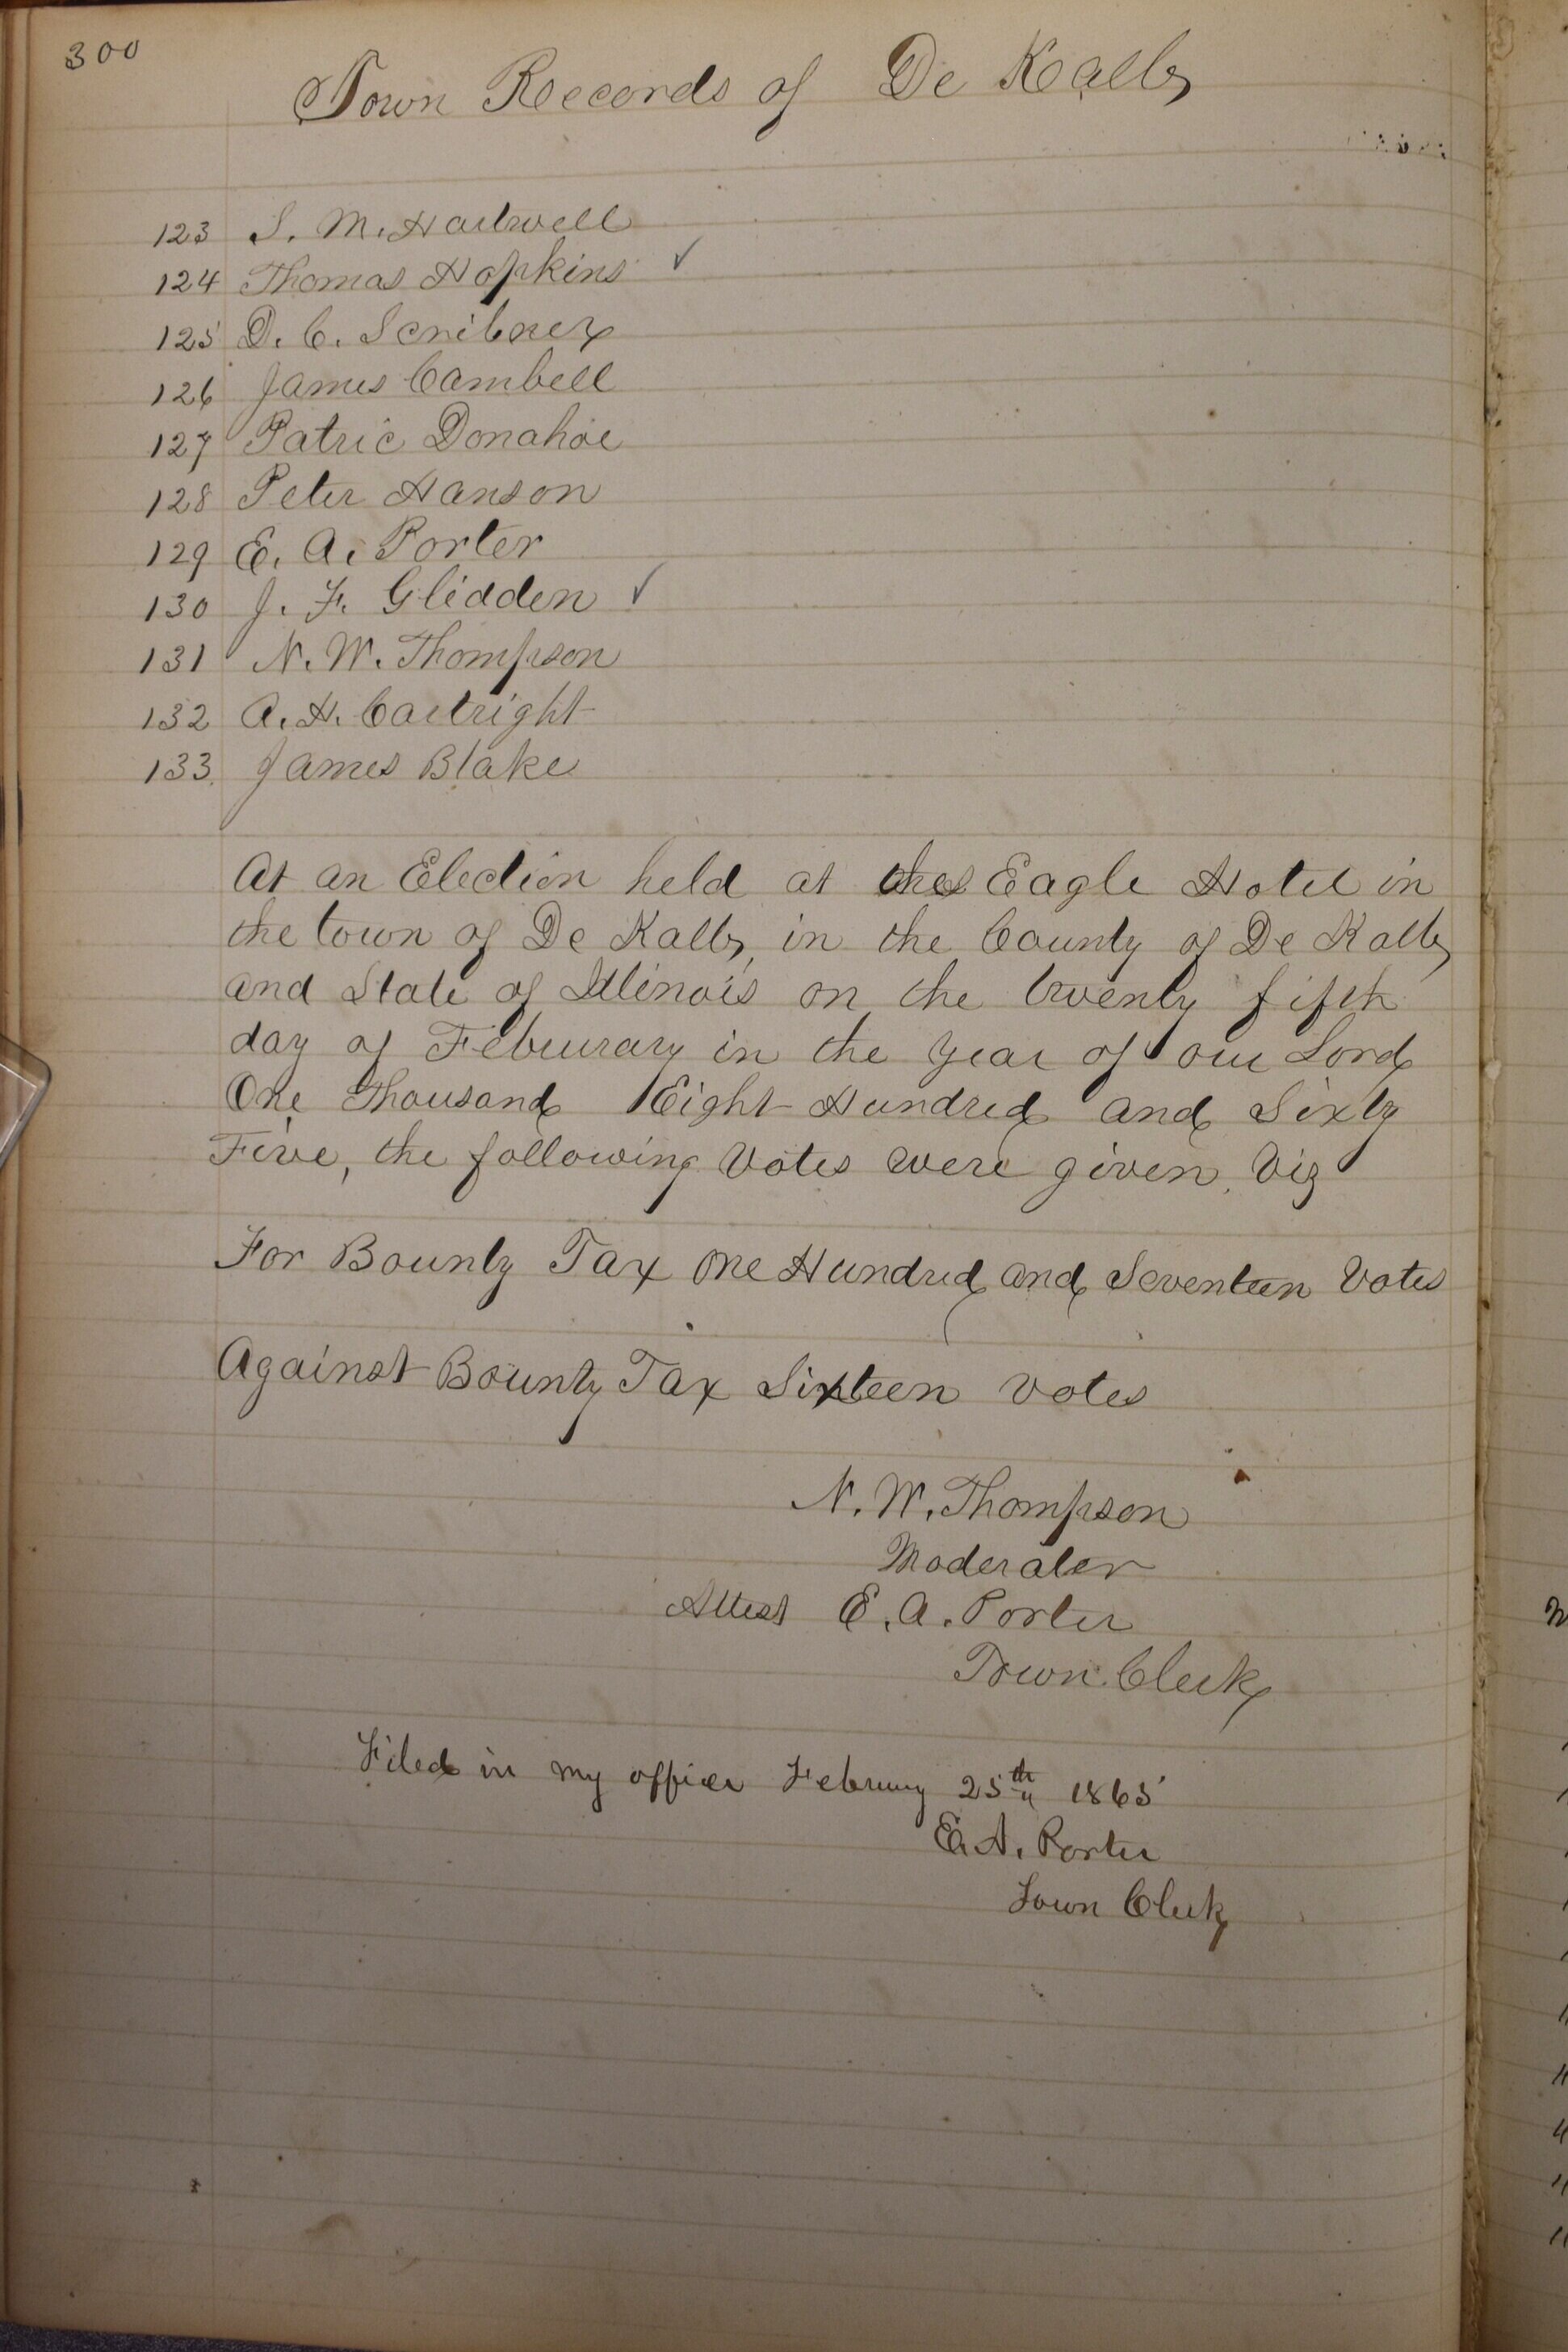 300
Town Records of De Kalb
123 S. M. Hartwell
124 Thomas Hopkins ✓
125 D. C. Scribner
126 James Cambell
127 Patric Donahoe
128 Peter Hanson
129 E. A. Porter
130 J. F. Glidden ✓
131 N. W. Thompson
132 A. H. Cartright
133. James Blake
At an Election held at the Eagle Hotel in
the town of De Kalb, in the County of De Kalb
and State of Illinois on the twenty fifth
day of Feburary in the year of our Lord
One Thousand Eight Hundred and Sixty
Five, the following Votes were given, Viz
For Bounty Tax One Hundred and Seventeen Votes
Against Bounty Tax Sixteen Votes
N. W. Thompson
Moderater
Attest E. A. Porter
Town Clerk
Filed in my office February 25th 1865
E. A. Porter
Town Clerk